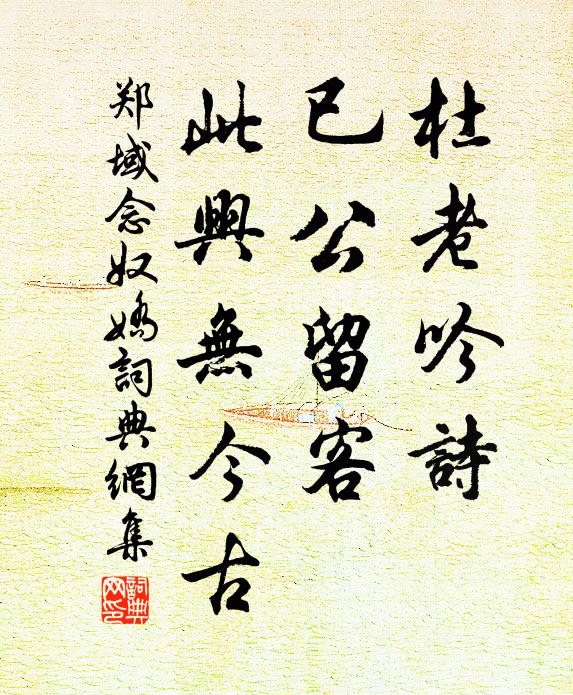 杜老吟詩
已公留客
此興無今古
郑域念奴嬌詞典網集
詞典网印